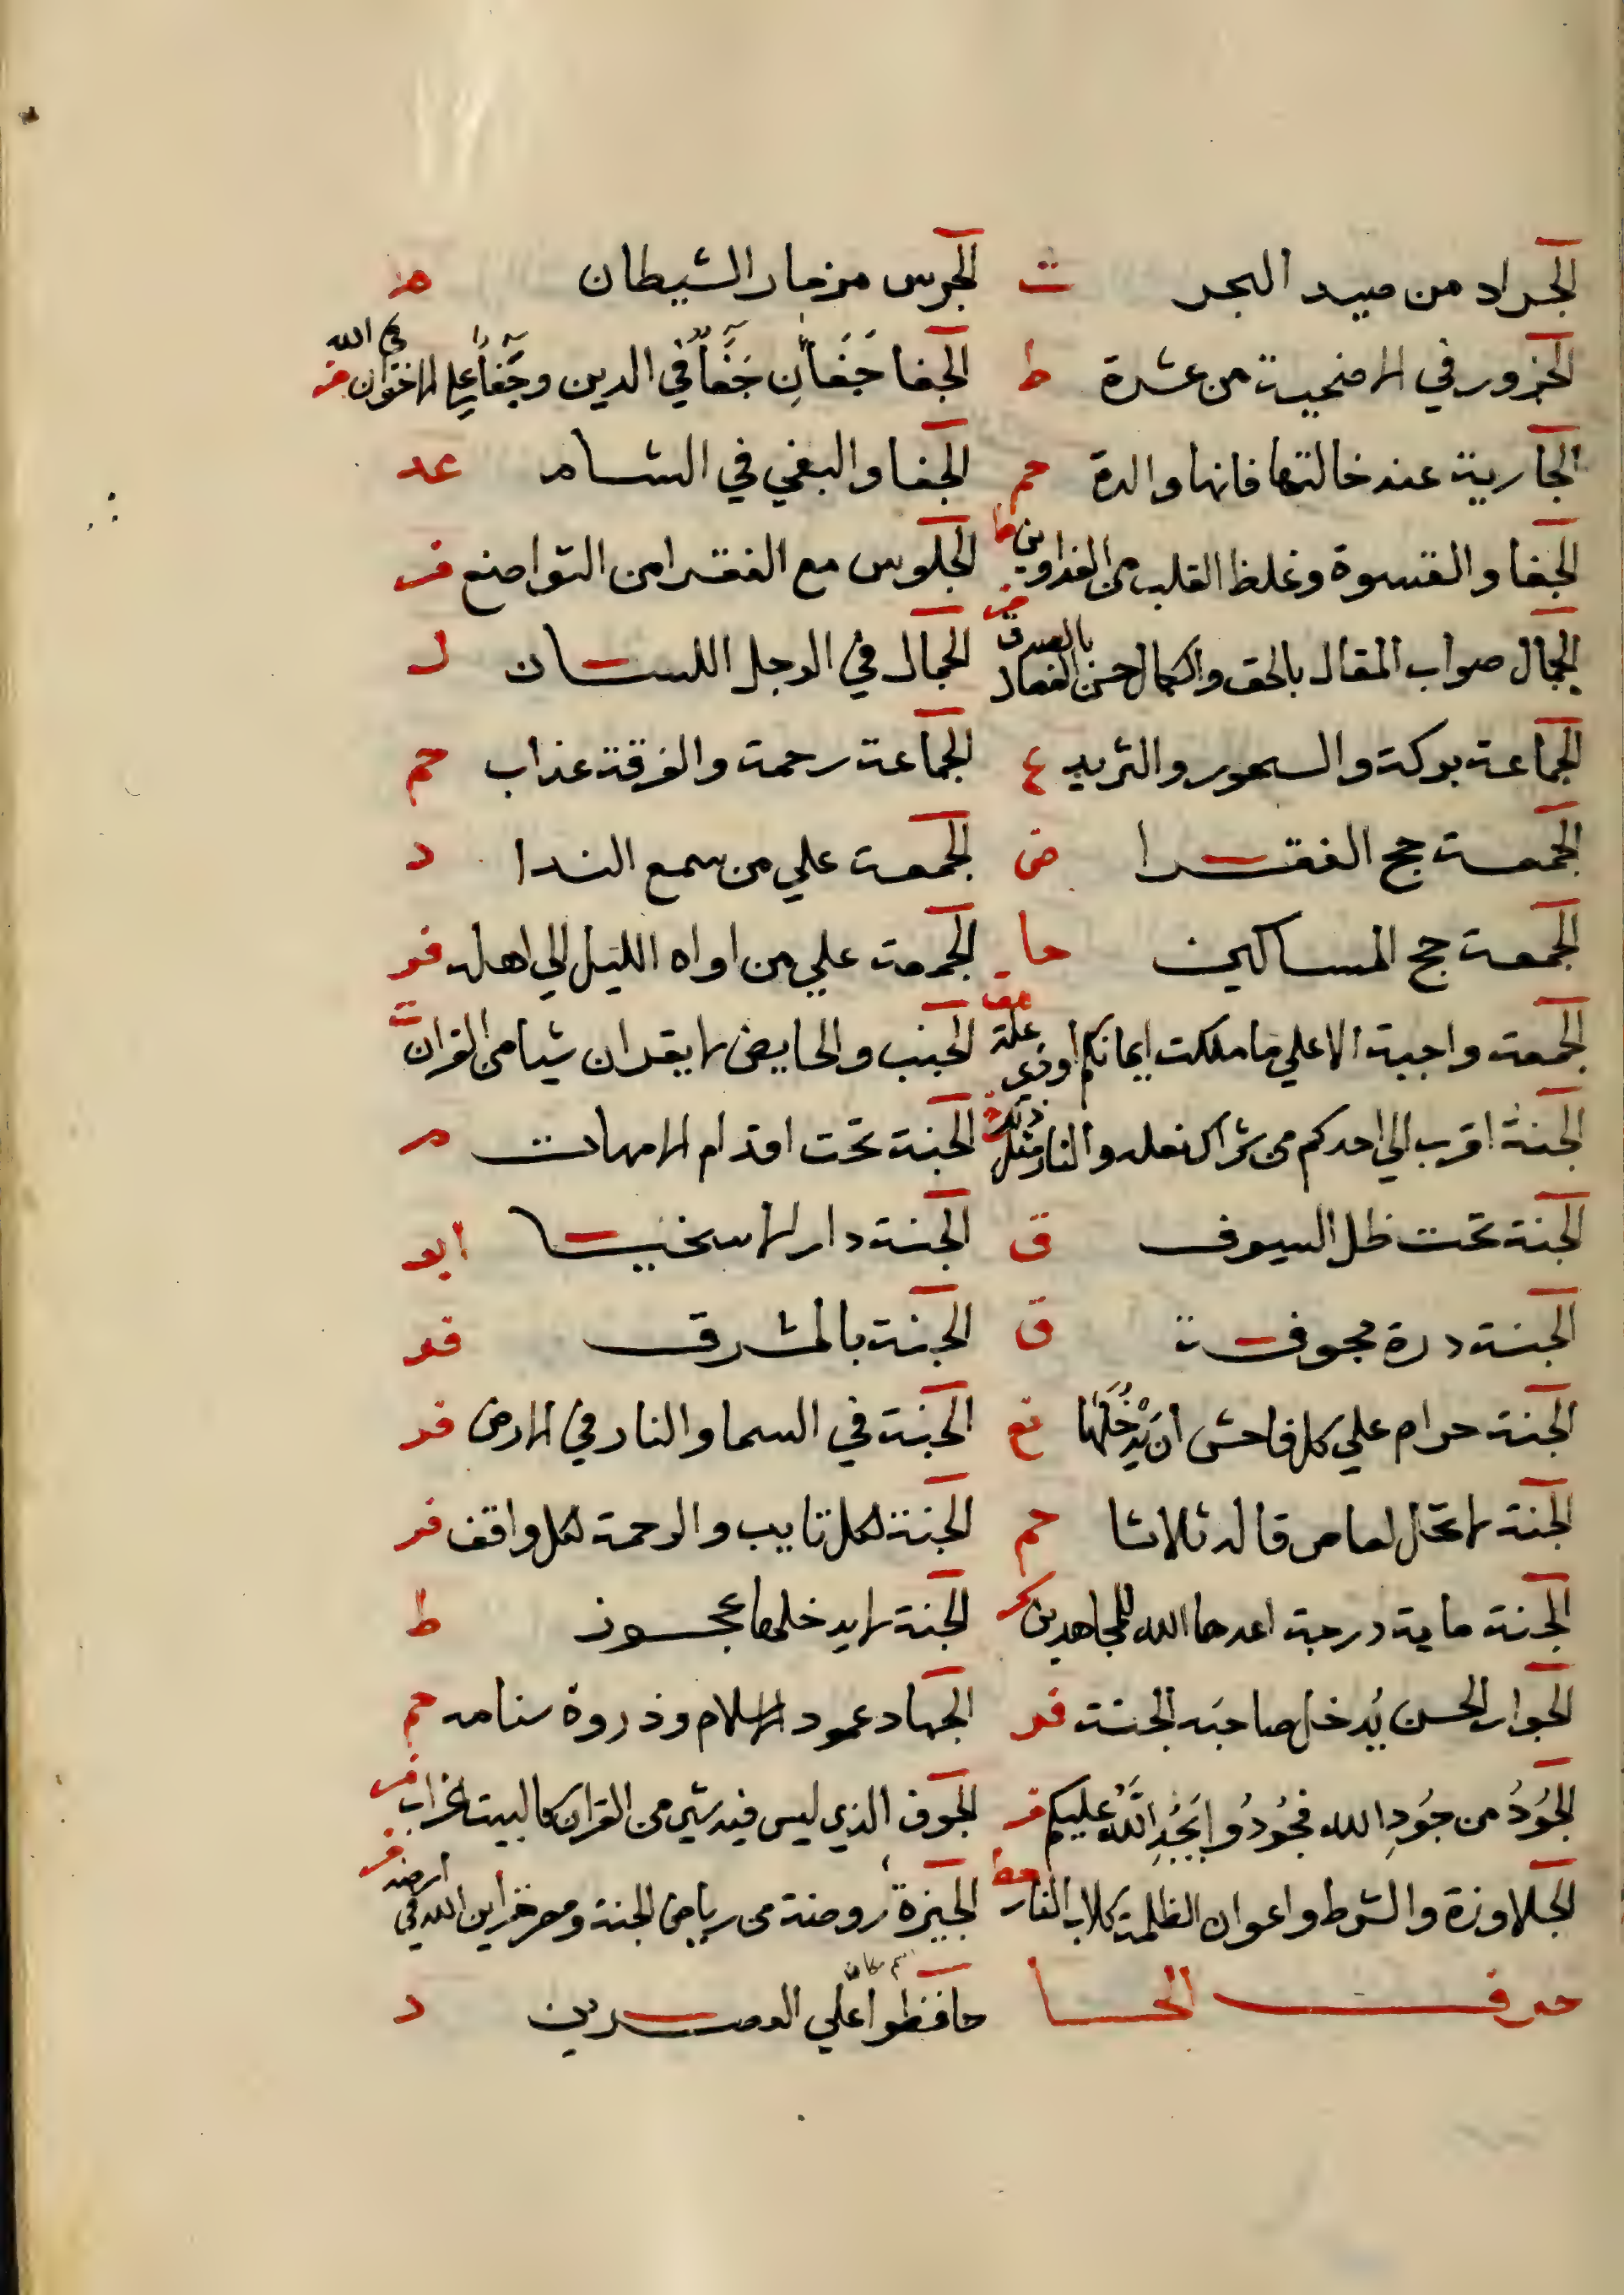 الجراد من صيد البحر ت الجرس مزمار الشيطان م
الجزور في الاضحية من عشرة ط الجفا جَفَآنِ جَفَآ في الدين وجَفَآ علي الاخوان في الله فر
الجارية عند خالتها فانها والدة حم الجفا والبغي في الشام عد
الجفا والقسوة وغلظ القلب من الفدادين ط الجلوس مع الفقرا من التواضع فر
الجمال صواب المقال بالحق والكمال حسن الفعال بالصدق الجمال في الرجل اللسان ل
الجماعة بركة والسحور والثريد ع الجماعة رحمة والفرقة عذاب حم
الجمعة حج الفقرا ض الجمعة علي من سمع الندا د
الجمعة حج المساكين حا الجمعة علي من اواه الليل الي اهله فر
الجمعة واجبة الا علي ما ملكت ايمانكم او ذي علة الجنب والحايض لا يقران شيا من القران ت
الجنة اقرب الي احدكم من شراك نعله والنار مثل ذلك الجنة تحت اقدام الامهات م
الجنة تحت ظل السيوف ق الجنة دار الاسخيا ابو
الجنة درة مجوفة ق الجنة بالمشرق فر
الجنة حرام علي كل فاحش اَن يَّدْخُلَهَا نع الجنة في السما والنار في الارض فر
الجنة لا تحل لعاص قاله ثلاثا حم الجنة لكل تايب والرحمة لكل واقف فر
الجنة ماية درجة اعدها الله للمجاهدين الجنة لا يدخلها عجوز ط
الجوار الحسن يُدخل صاحبَه الجنة فر الجهاد عمود الاسلام وذروة سنامه حم
الجُودُ من جُودِ الله فجُودُوا يَجُدِ اللّهُ عليكم فر الجوف الذي ليس فيه شي من القران كالبيت الخراب فر
الجلاوزة والشرط واعوان الظلمة كلاب النار حط الجيزة روضة من رياض الجنة ومصر خزاين الله في ارضه فر
حرف الحا حافظوا علي العصرين د